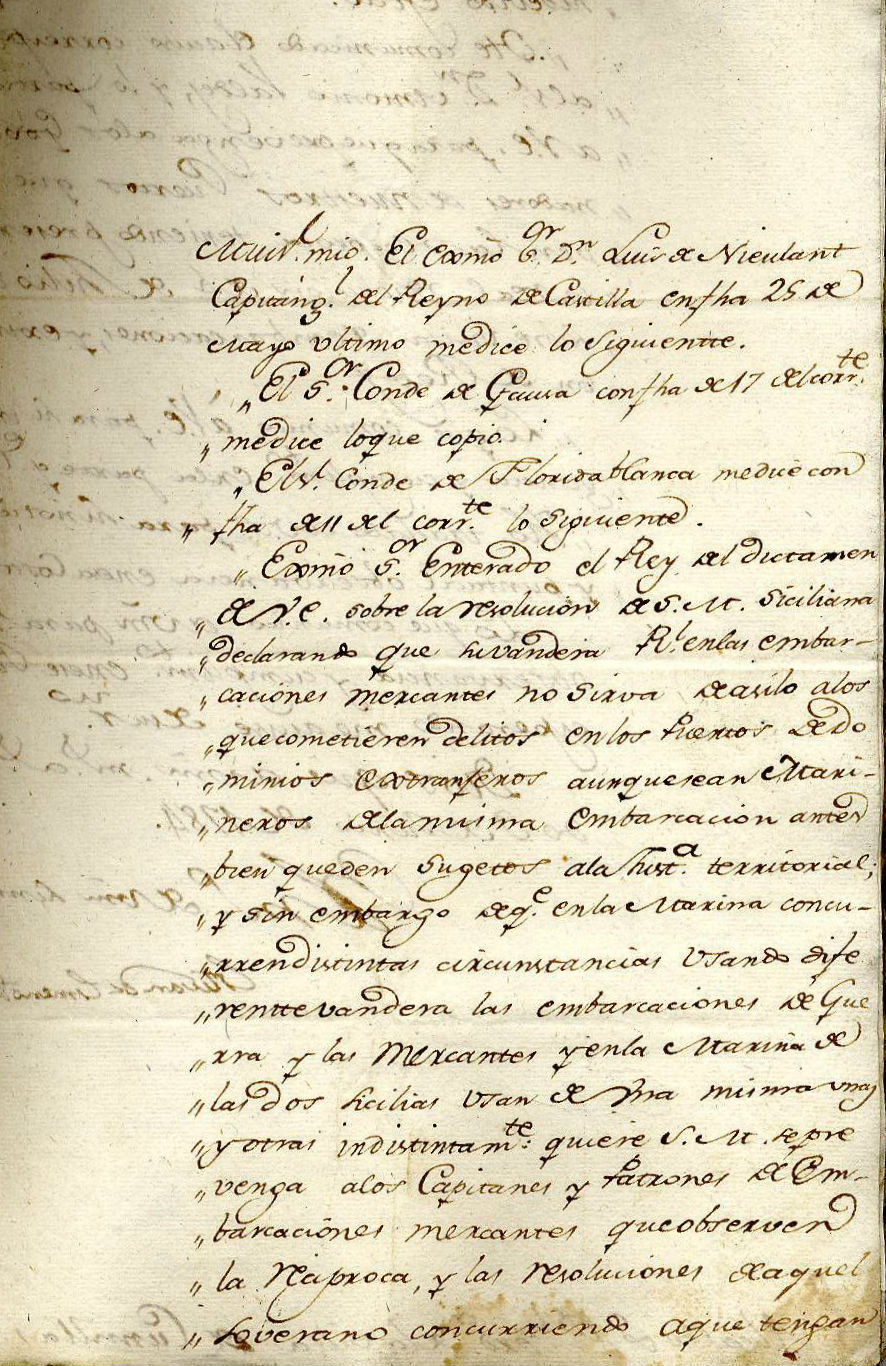 Mui Sr. mio. El Exmô Sor. Dn. Luis de Nieulant
Capitan gl. del Reyno de Castilla en fha 25 de
Mayo ultimo medice lo Siguientte.
„ El Sor. Conde de Gausa con fha de 17 del corrte.
„ medice loque copio.
„ El Sr. Conde de Floridablanca medice con
„ fha de 11 del corrte. lo Siguiente.
„ Exmô Sor. Enterado el Rey del dictamen
„ de V.E. sobre la resolucion de S. M. Siciliana
„ declarando que su vandera Rl. enlas embar-
„ caciones mercantes no Sirva de asilo alos
„ quecometieren delitos en los Puertos de do
„ minios extranjeros aunquesean Mari-
„ neros dela misma Embarcacion antes
„ bien queden sugetos ala Justa. territorial;
„ y sin embargo de qe. en la Marina concu-
„ rren distintas circunstancias Usando dife
„ rentte vandera las embarcaciones de Gue
„ rra y las Mercantes y en la Marina de
„ las dos Sicilias Usan de Una misma unas
„ y otras indistintamte. quiere S. M. se pre
„ venga alos Capitanes y Patrones de Em-
„ barcaciones mercantes que observen
„ la Reciproca, y las resoluciones de aquel
„ Soverano concurriendo aque tengan